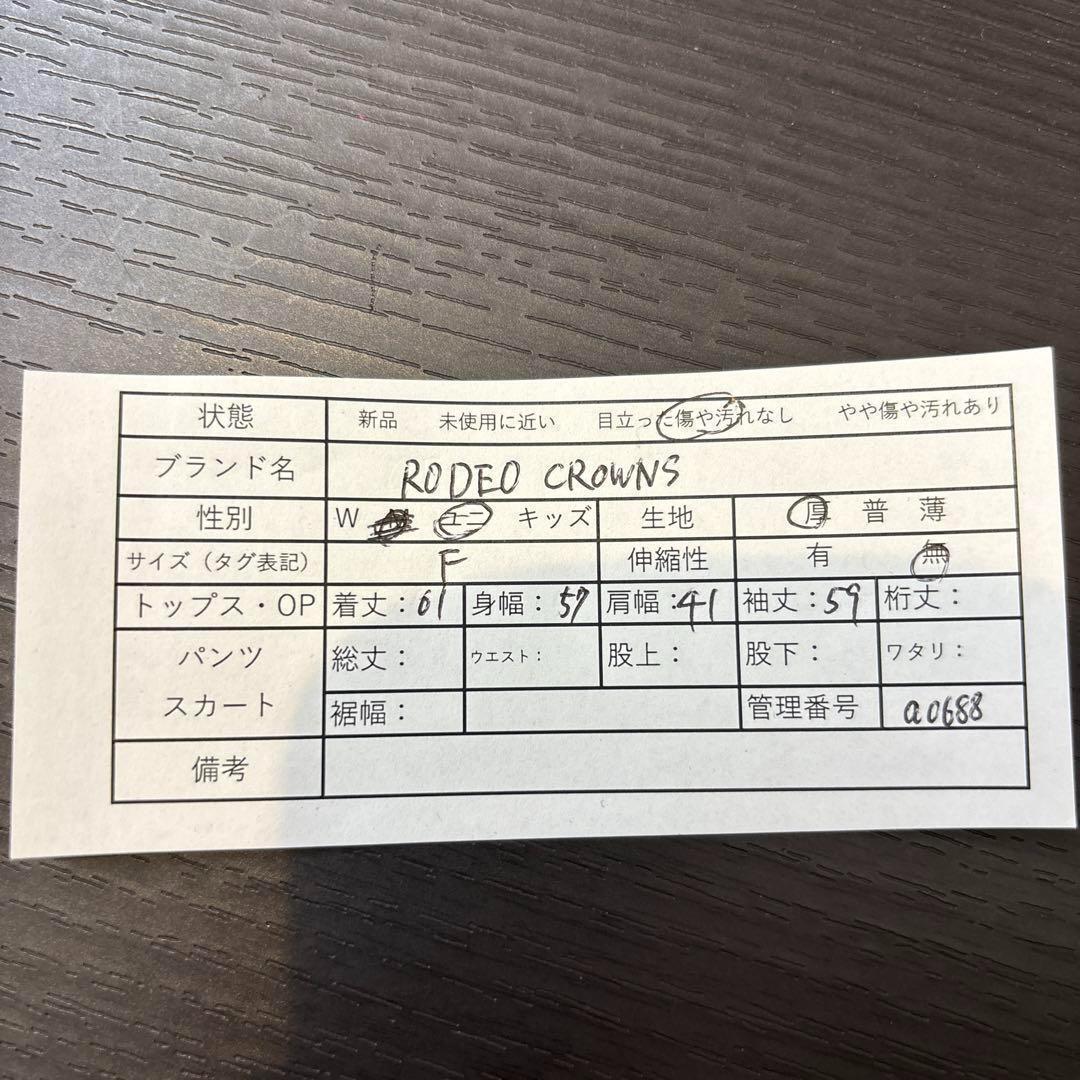 状態 新品 未使用に近い 目立った傷や汚れなし やや傷や汚れあり
ブランド名 RODEO CROWNS
性別 W ユニ キッズ 生地 厚 普 薄
サイズ（タグ表記） F 伸縮性 有 無
トップス・OP 着丈：61 身幅：57 肩幅：41 袖丈：59 裄丈：
パンツ 総丈： ウエスト： 股上： 股下： ワタリ：
スカート 裾幅： 管理番号 a0688
備考